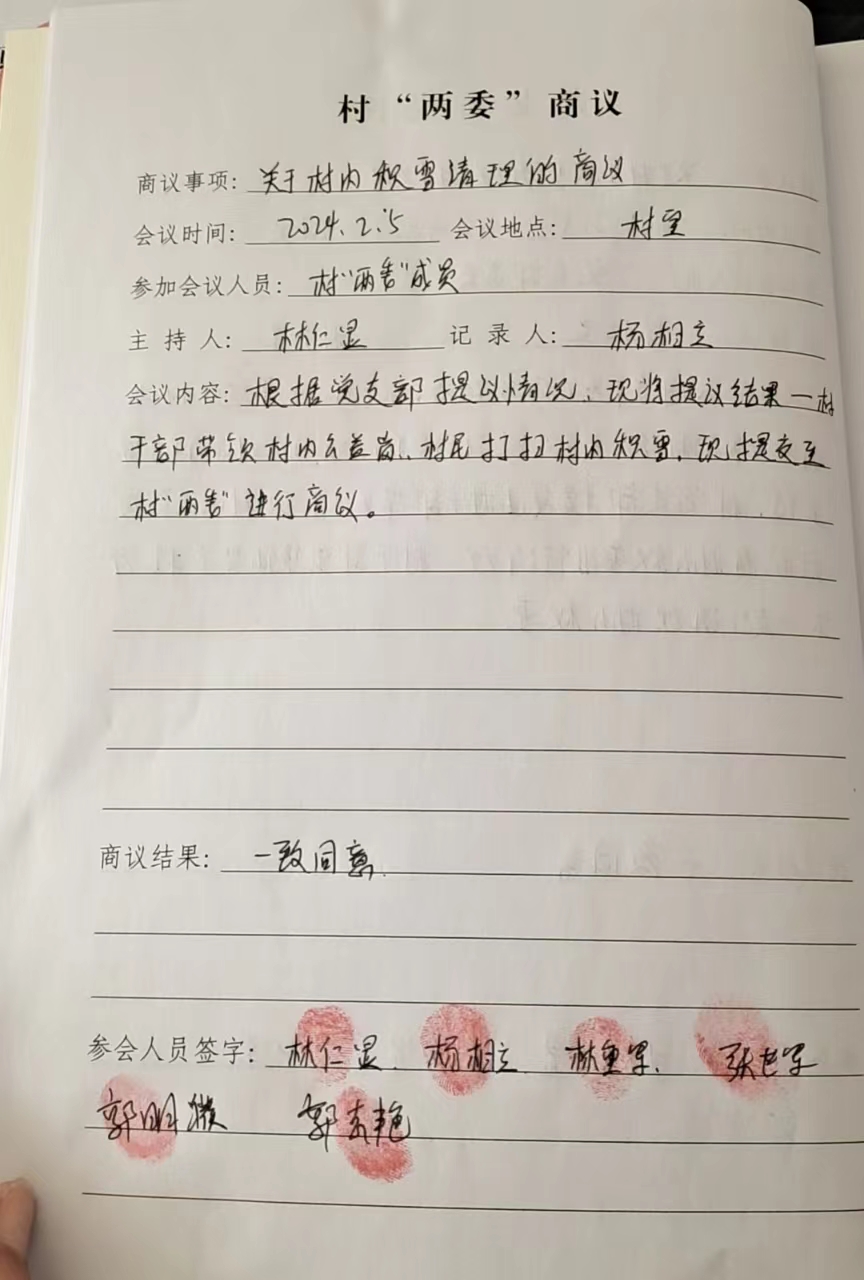 村“两委”商议
商议事项：关于村内积雪清理的商议
会议时间：2024.2.5 会议地点：村室
参加会议人员：村“两委”成员
主持人：林仁显 记录人：杨相立
会议内容：根据党支部提议情况，现将提议结果—村
干部带领村内公益岗、村民打扫村内积雪，现提交至
村“两委”进行商议。
商议结果：一致同意.
参会人员签字：林仁显. 杨相立
郭明